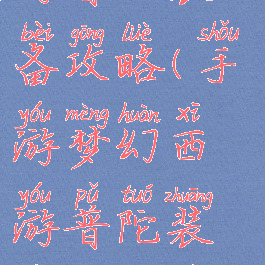 bèi gōng lüè shǒu
备攻略(手
yóu mèng huàn xī
游梦幻西
yóu pǔ tuó zhuāng
游普陀装